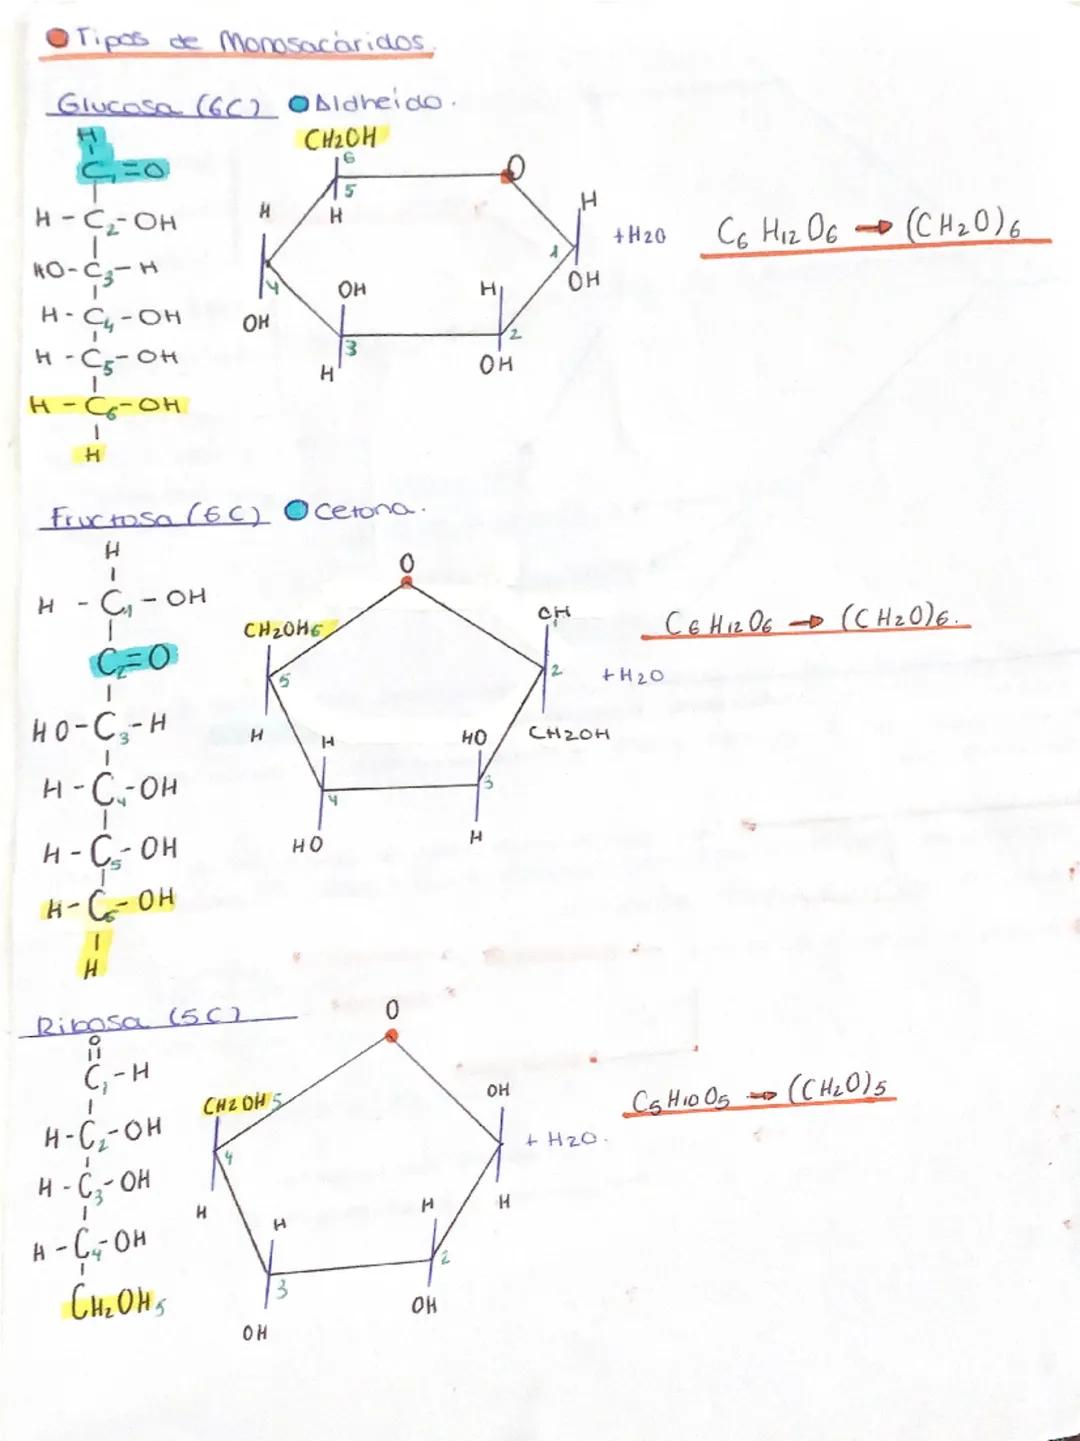 Tipos de Monosacáridos.
Glucosa (6C) Aldheido.
H
C1=O
H-C2-OH
HO-C3-H
H-C4-OH
H-C5-OH
H-C6-OH
H
CH2OH
6
5
O
H
H
H
1
4
OH
OH
H
OH
3
2
H
OH
+H2O
C6 H12 O6 → (CH2O)6
Fructosa (6C) Cetona.
H
H - C1 - OH
C2=O
HO-C3-H
H-C4-OH
H-C5-OH
H-C6-OH
H
O
CH2OH6
OH
5
2
H
H
HO
CH2OH
4
3
HO
H
+H2O
C6 H12 O6 → (CH2O)6.
Ribosa (5C)
O
C1-H
H-C2-OH
H-C3-OH
H-C4-OH
CH2OH5
O
CH2OH5
OH
4
H
H
H
H
3
2
OH
OH
+ H2O.
C5 H10 O5 → (CH2O)5